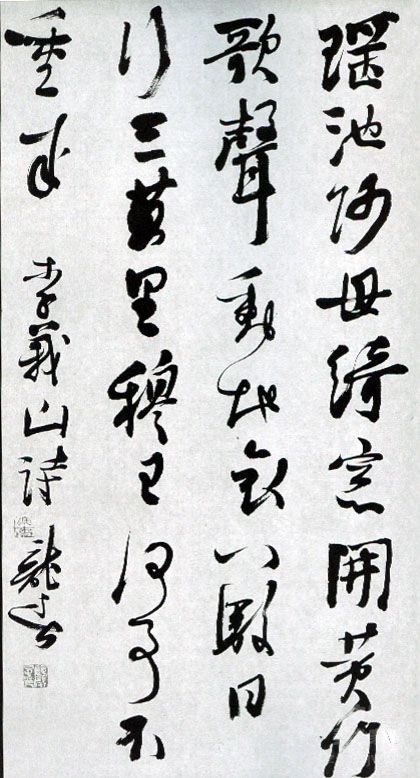 瑤池阿母綺窓開黃竹
歌聲動地哀八駿日
行三萬里穆王何事不
重来 李義山詩